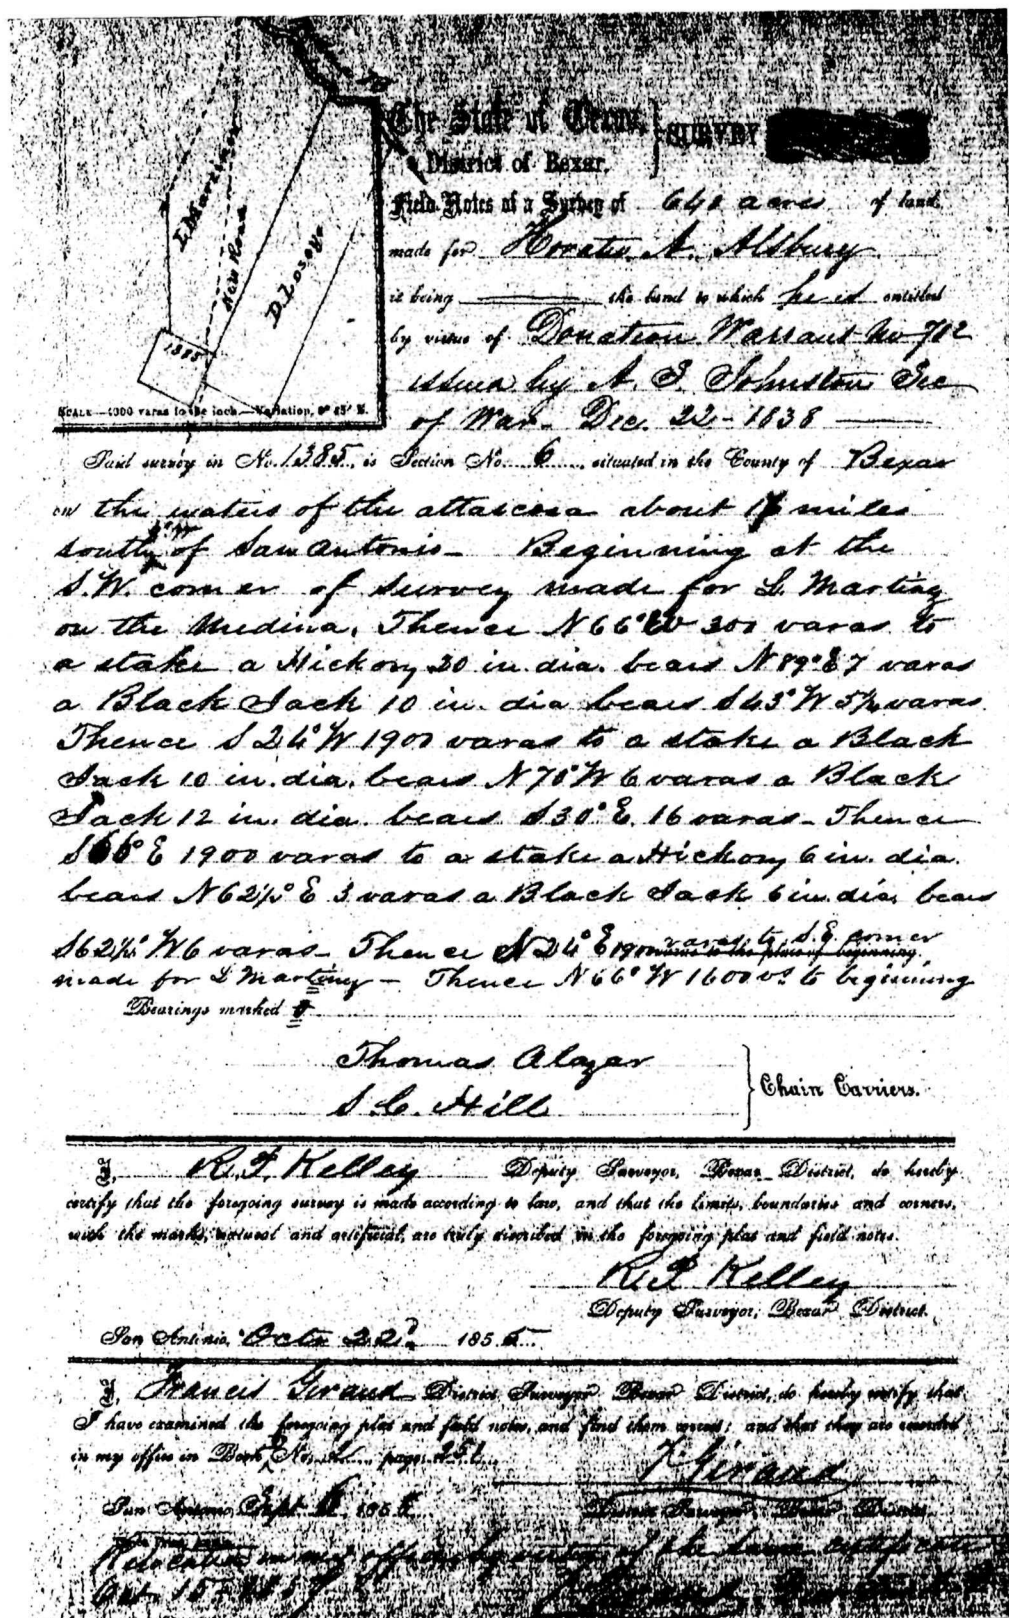 L. Martinez
New Road
D. Losoya
1385
SCALE—4000 varas to the inch.—Variation, 9° 45' E.
The State of Texas,
District of Bexar.
SURVEY
Field Notes of a Survey of 640 acres of land
made for Horatio A. Alsbury
it being the land to which he is entitled
by virtue of Donation Warrant No 712
issued by A. S. Johnston Sec
of War Dec. 22 - 1838
Said survey in No. 1385, is Section No. 6, situated in the County of Bexar
on the waters of the attascosa about miles
south of San Antonio - Beginning at the
S.W. corner of survey made for L. Martinez
on the Medina, Thence N 66° W 300 varas to
a stake a Hickory 20 in dia. bears N 89° E 7 varas
a Black Jack 10 in. dia bears S 43° W varas.
Thence S 24° W 1900 varas to a stake a Black
Jack 10 in. dia. bears N 70° W 6 varas a Black
Jack 12 in. dia. bears S 30° E. 16 varas - Thence
S 66° E 1900 varas to a stake a Hickory 6 in. dia.
bears N 62½° E 3 varas a Black Jack 6 in. dia. bears
S 62½° W 6 varas - Thence N 24° E 1900 varas to S. E. corner
varas to the place of beginning.
made for L Martinez - Thence N 66° W 1600 vs. to beginning
Bearings marked
Thomas Alazar
S. C. Hill
Chain Carriers.
I, R. F. Kelley Deputy Surveyor, Bexar District, do hereby
certify that the foregoing survey is made according to law, and that the limits, boundaries and corners,
with the marks, natural and artificial, are truly described in the foregoing plat and field notes.
R. F. Kelley
Deputy Surveyor, Bexar District.
San Antonio, Octr 22d 1855
I, Francis Giraud District Surveyor Bexar District, do hereby certify that
I have examined the foregoing plat and field notes, and find them correct; and that they are recorded
in my office in Book No. page
F Giraud
San Antonio Sept 185
District Surveyor, Bexar District.
Relocated in my office by virtue of the same certificate
Oct. 15